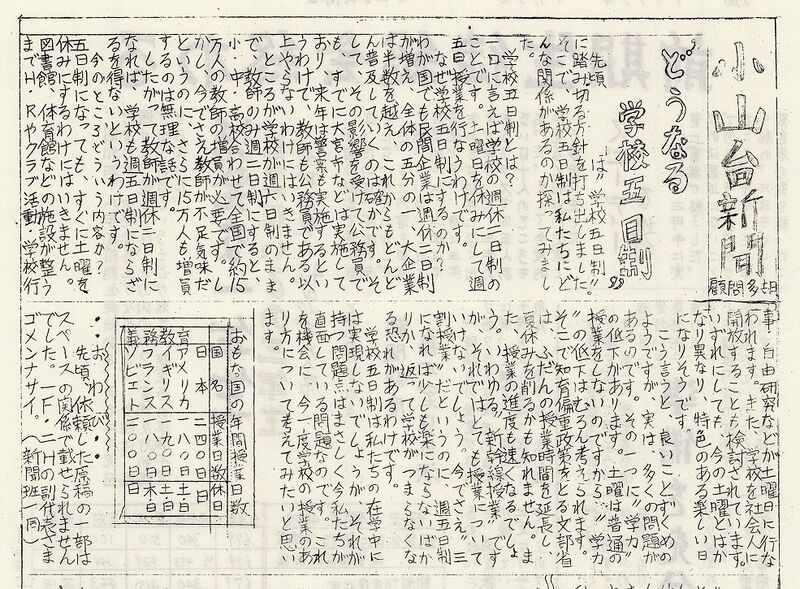 小山台新聞
顧問多胡
どうなる
学校五日制〟
先頃、
は〝学校五日制〟
に踏み切る方針を打ち出しました。
そこで、学校五日制は私たちにど
んな関係があるのか探ってみまし
た。
学校五日制とは？
一口に言えば学校の週休二日制の
ことです。土曜日を休みにして週
五日授業を行なうわけです。
なぜ学校五日制にするのか？
わが国でも民間企業は週休二日制
が増え、全体の五分の一、大企業
は半数を越え、これからもどんど
ん普及していくのは確かです。そ
して、その影響を受けて公務員で
も、すでに大宮市などは実施して
おり、来年は警察も実施するとい
うわけで、教師も公務員である以
上やらないわけにはいきません。
ところが学校が週六日制のまま
で、教師のみ週二日制にすると、
小・中・高校合わせて全国で約15
万人の教師の増員が必要です。し
かし、今でさえ教師が不足気味だ
というのに、さらに15万人も増員
するのは無理な話です。
したがって教師が週休二日制に
なれば、学校も週五日制にならざ
るを得ないというわけです。
今のところどういう内容か？
五日制になっても、すぐに土曜を
休みにするわけにはいきません。
図書館、体育館などの施設が整う
までH.Rやクラブ活動、学校行
事、自由研究などが土曜日に行な
われます。また、学校を社会人に
開放することも検討されています。
いずれにしても、今の土曜とはか
なり異なり、特色のある楽しい日
になりそうです。
こう言うと、良いことずくめの
ようですが、実は、多くの問題が
あるのです。その一つに〝学力
の低下〟があります。土曜は普通の
授業をしないのですから、〝学力
の低下〟はむろん考えられます。
そこで知育偏重政策をとる文部省
は、ふだんの授業時間を延長し、
夏休みを削るかも知れません。ま
た、授業の進度も速くなるでしょ
う。いわゆる〝新幹線授業〟です
が、それではとても授業について
いけないでしょう。今でさえ〝三
割授業〟だというのに、週五日制
になれば少しも楽にならないばか
りか、返って学校がつまらなくな
る恐れがあるわけです。
学校五日制は私たちの在学中に
は実現しないでしょうが、それが
持つ問題点はまさしく今私たちが
直面している問題なのです。これ
を機会に、今一度学校の授業のあ
り方について考えてみたいと思い
ます。
おもな国の年間授業日数
国名　授業日数　休日
日本　二四〇日　日
アメリカ　一八〇日　土日
イギリス　一九〇日　土日
フランス　一八〇日　木日
ソビエト　二〇〇日　日
義務教育
・おわび・
先頃、依頼した原稿の一部は
スペースの関係で載せられません
でした。1F、2Hの副代表サマ
ゴメンナサイ。（新聞班一同）